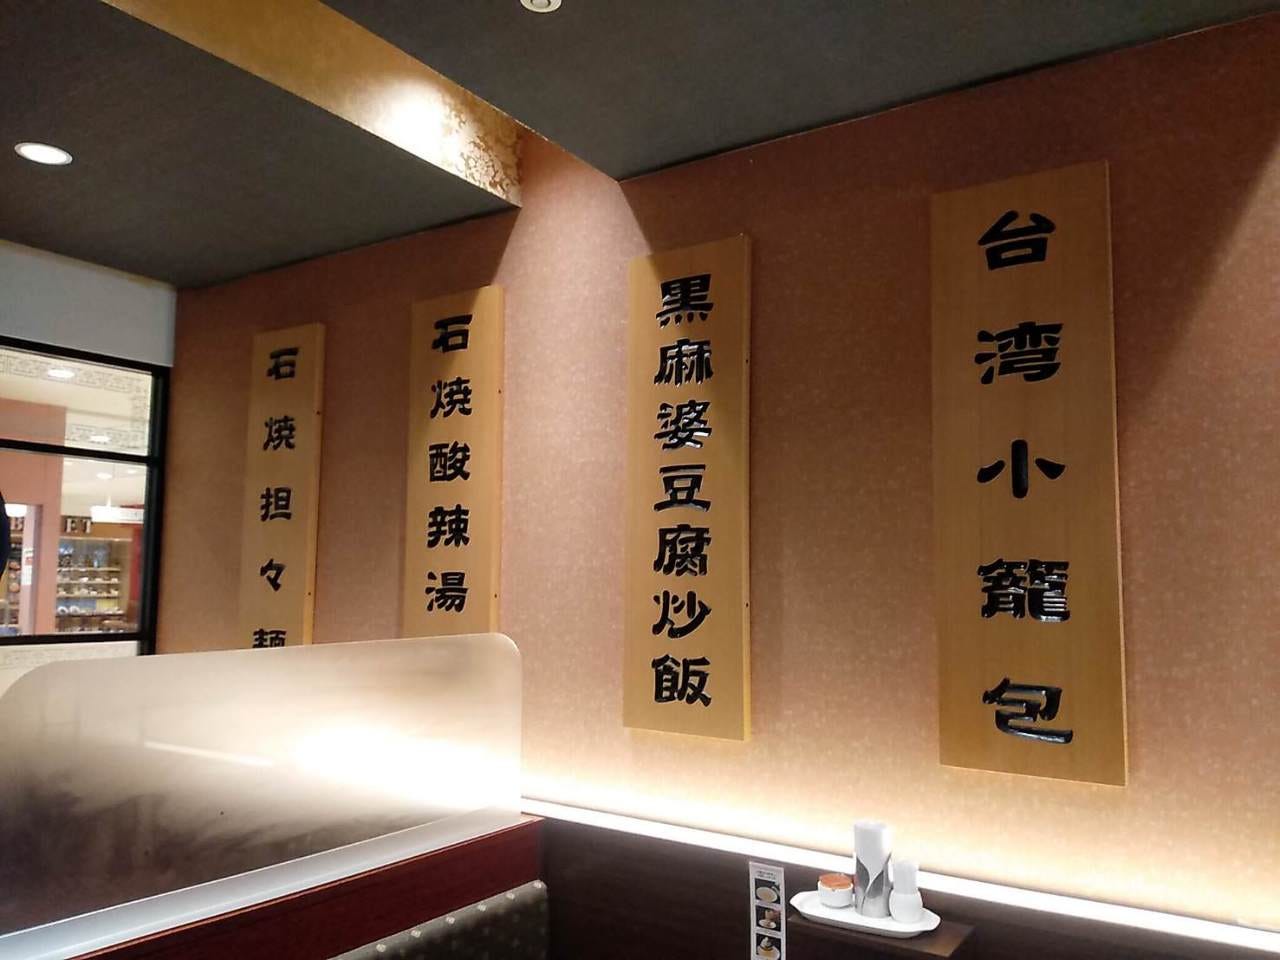 台湾小籠包
黒麻婆豆腐炒飯
石焼酸辣湯
石焼担々麺